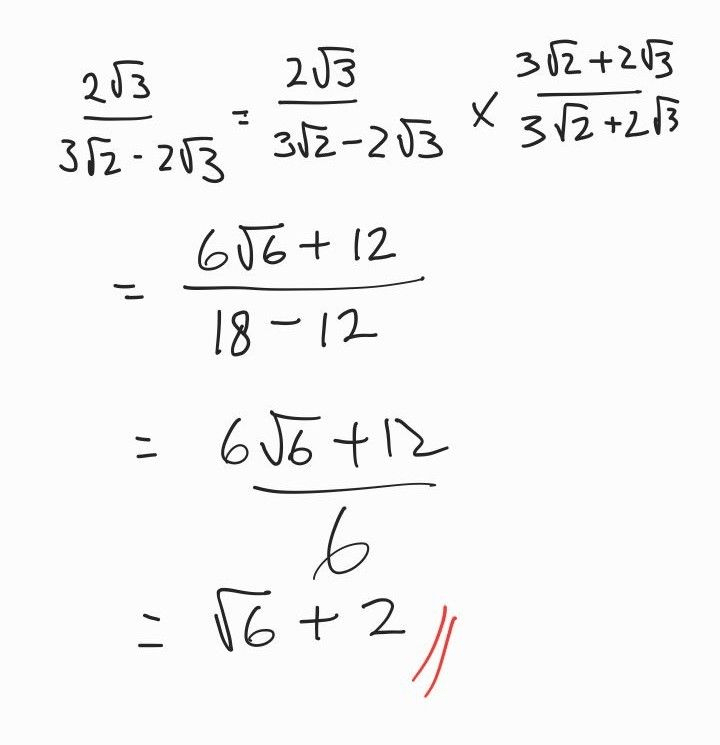 2√3/(3√2 - 2√3) = 2√3/(3√2 - 2√3) × (3√2 + 2√3)/(3√2 + 2√3)
= (6√6 + 12)/(18 - 12)
= (6√6 + 12)/6
= √6 + 2 //